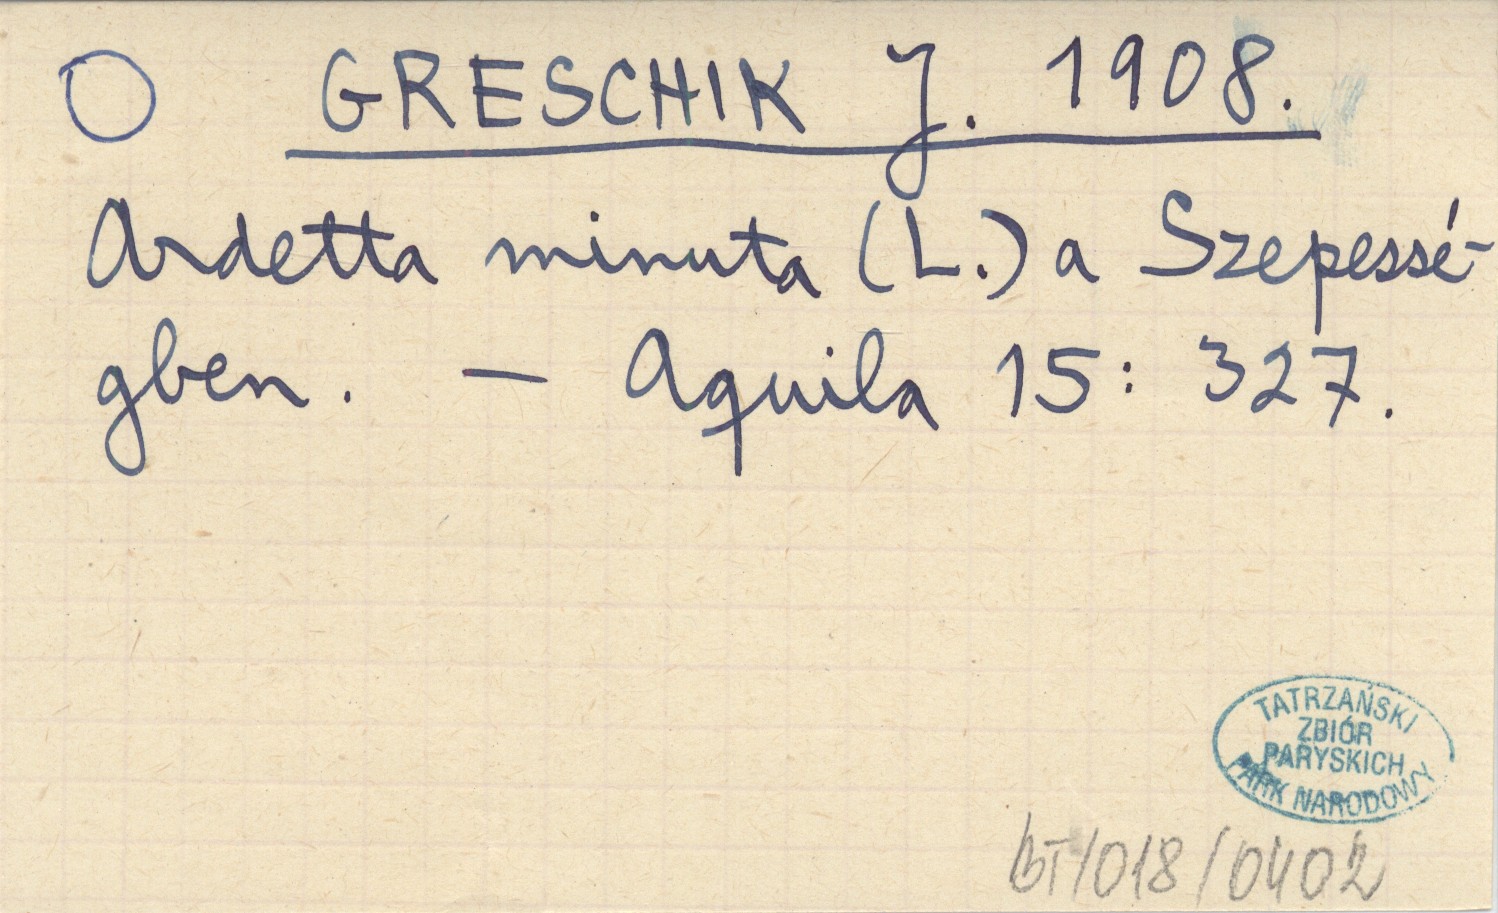 GRESCHIK J. 1908.
Ardetta minuta (L.) a Szepessé-
gben. — Aquila 15: 327.
TATRZAŃSKI
ZBIÓR
PARYSKICH
PARK NARODOWY
BT/018/0402